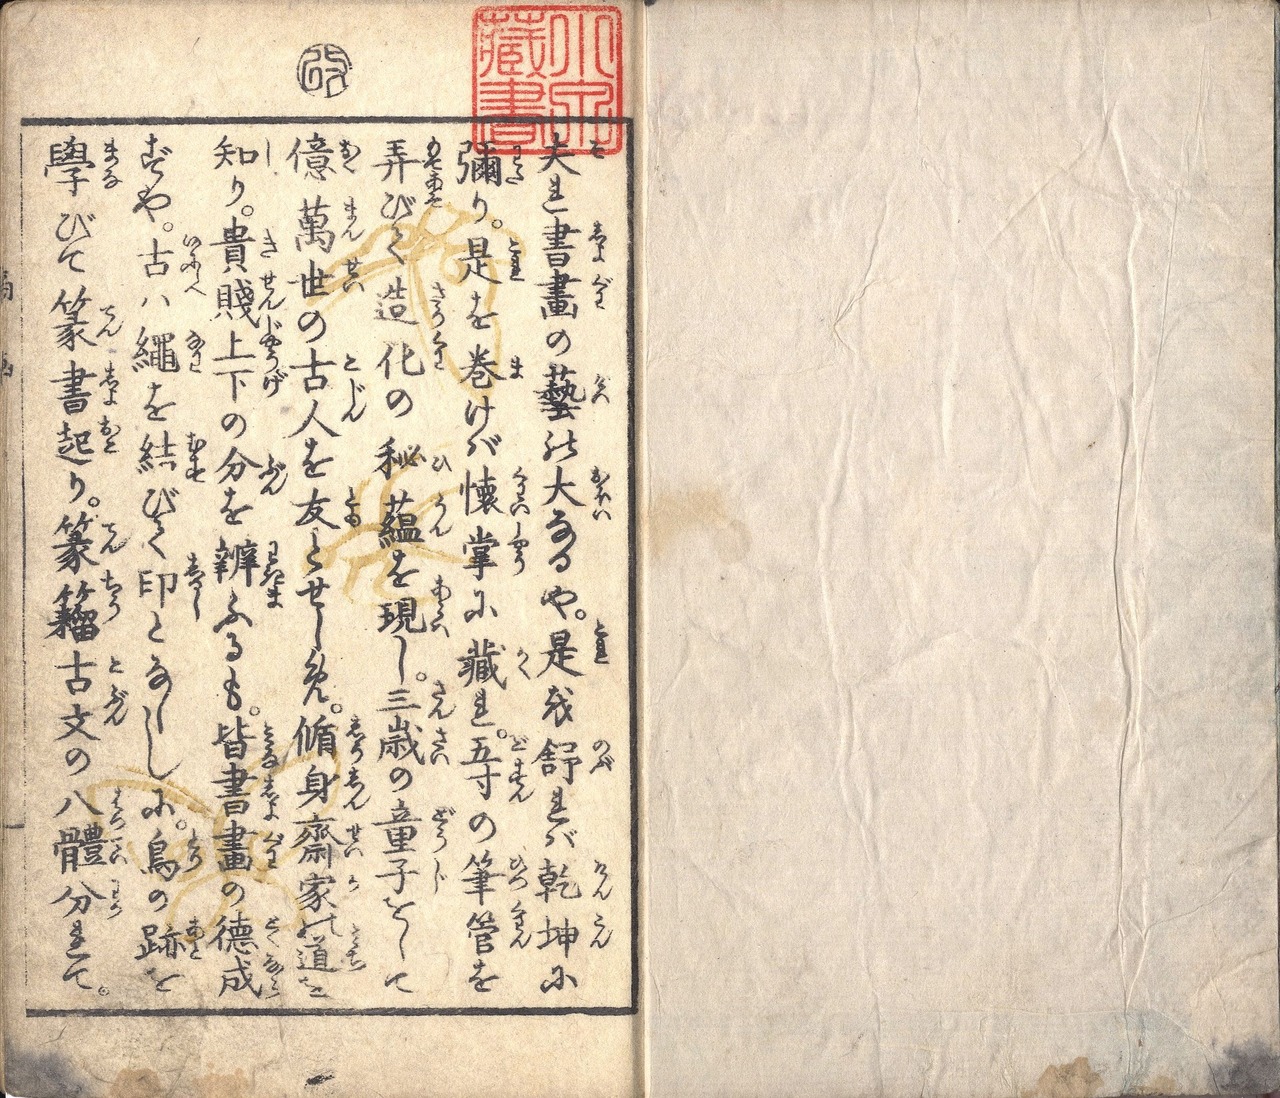 小汀
藏書
改
夫れ書畫の藝の大なるや。是を舒れバ乾坤に
彌り。是を巻けバ懐掌に藏れ。五寸の筆管を
弄びて造化の秘蘊を現し。三歳の童子をして
億萬世の古人を友とせしめ。脩身齋家の道を
知り。貴賤上下の分を辨ふるも。皆書畫の徳成
ずや。古ハ繩を結びて印となしゝに。鳥の跡を
學びて篆書起り。篆籀古文の八體分れて。